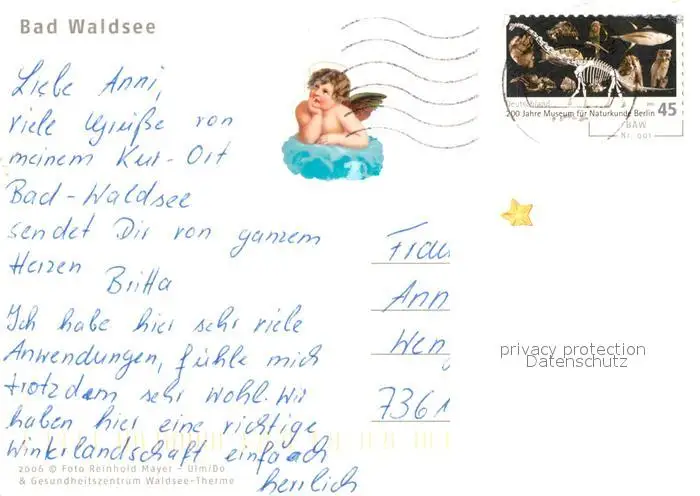 Bad Waldsee
Liebe Anni,
viele Grüße von
meinem Kur-Ort
Bad-Waldsee
sendet Dir von ganzem
Herzen
Britta
Ich habe hier sehr viele
Anwendungen, fühle mich
trotzdem sehr wohl. Wir
haben hier eine richtige
Winterlandschaft einfach
herrlich
2006 © Foto Reinhold Mayer - Ulm/Do
& Gesundheitszentrum Waldsee-Therme
Deutschland
200 Jahre Museum für Naturkunde Berlin 45
BAW
Nr. 001
Frau
Ann
Weng
7361
privacy protection
Datenschutz